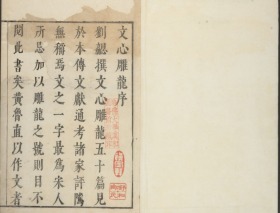 文心雕龍序
劉勰撰文心雕龍五十篇見
於本傳文獻通考諸家評隲
無稱焉文之一字最爲宋人
所忌加以雕龍之號則目不
閱此書矣黃魯直以作文者